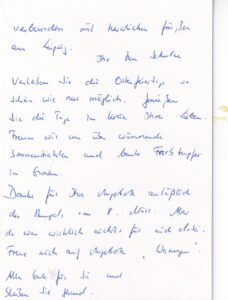 verbunden mit herzlichen Grüßen
aus Leipzig.
Ihr
Verleben Sie die Osterfeiertage so
schön wie nur möglich. Genießen
Sie die Tage im Kreis Ihrer Lieben.
Freuen wir uns über wärmende
Sonnenstrahlen und bunte Farbtupfer
im Garten.
Danke für Ihre Angebote anläßlich
des am 8. März. Aber
da war wirklich nichts für mich dabei.
Freue mich auf Angebote
Alles Gute für Sie und
bleiben Sie gesund.